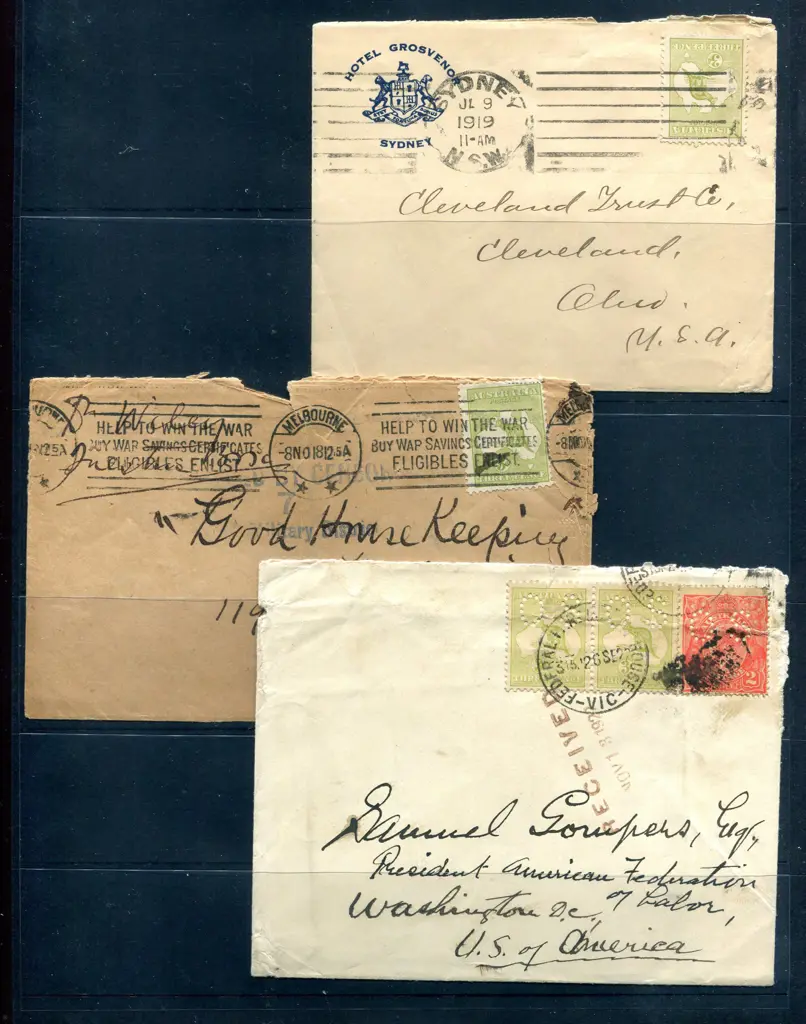 HOTEL GROSVENOR
SYDNEY
SYDNEY
JL 9
1919
11-AM
N.S.W.
3
Cleveland Trust Co,
Cleveland,
Ohio.
U.S.A.
HELP TO WIN THE WAR
BUY WAR SAVINGS CERTIFICATES
ELIGIBLES ENLIST.
MELBOURNE
-8NO18 12.5A
HELP TO WIN THE WAR
BUY WAR SAVINGS CERTIFICATES
ELIGIBLES ENLIST.
AUSTRALIA
MELBO
"Good House Keeping
119
FEDERAL HOUSE-VIC
2
RECEIVED
NOV 13 192
Samuel Gompers, Esq,
President American Federation
of Labor,
Washington D.C.,
U.S. of America